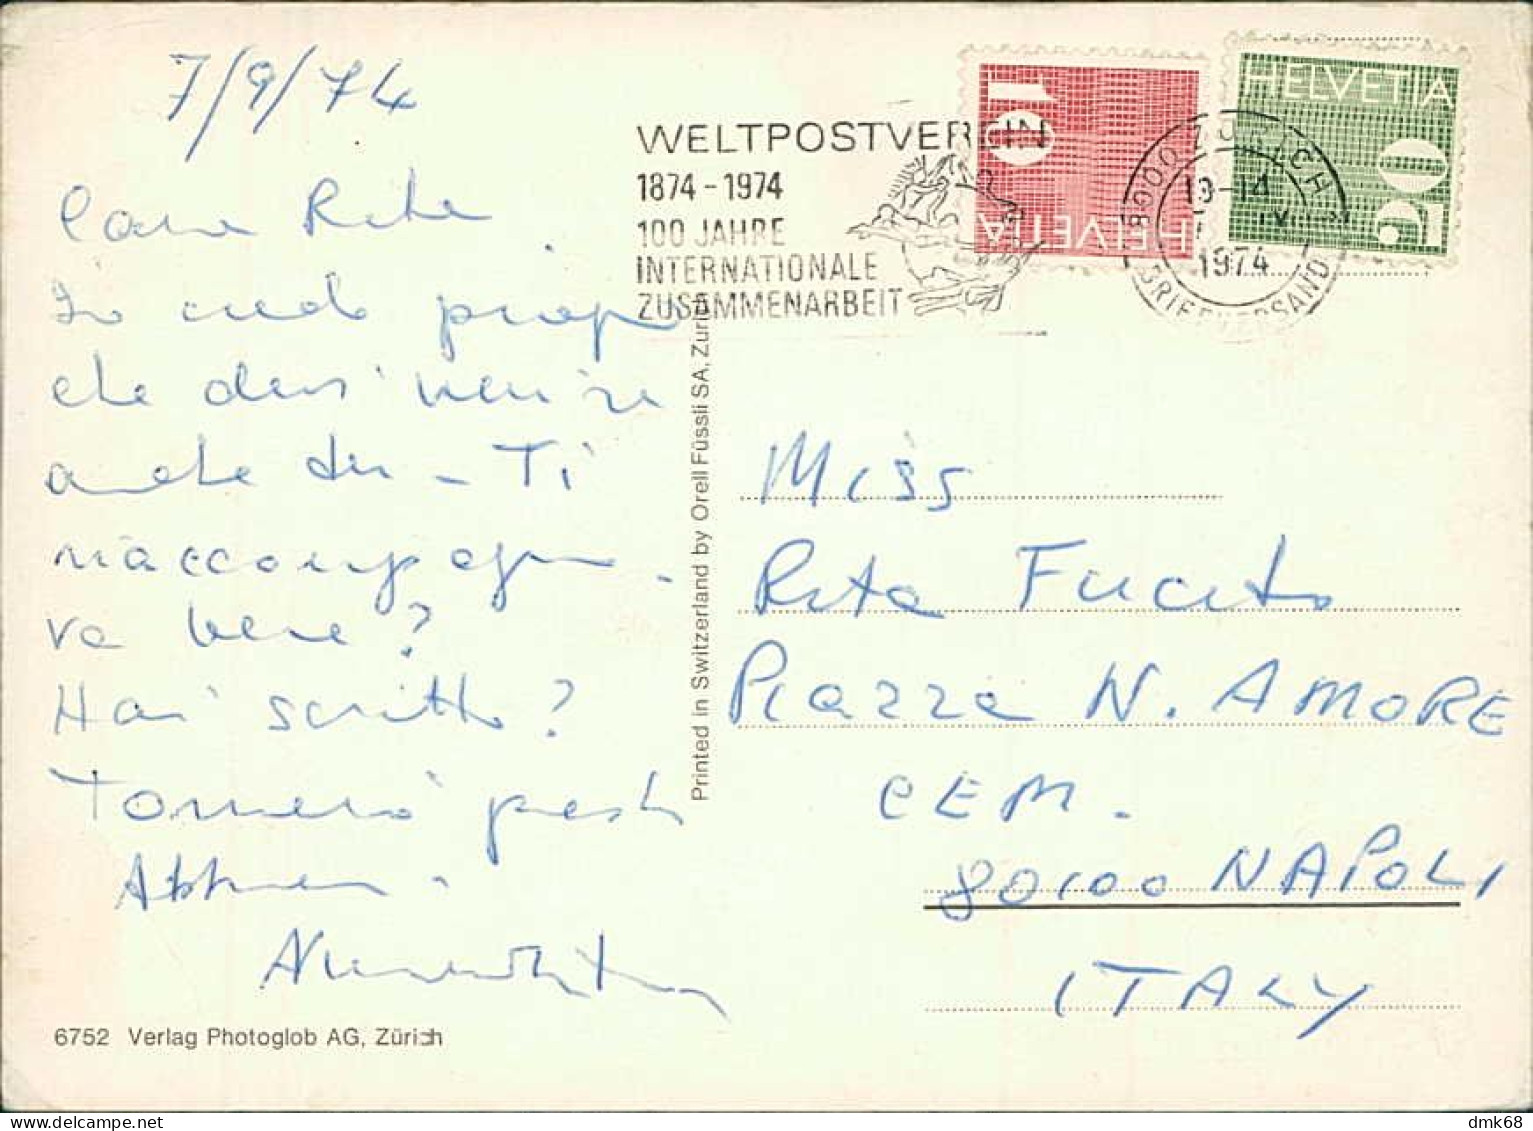 7/9/74
Cara Rita
Io credo proprio
che devi venire
anche tu - Ti
riaccompagno.
va bene?
Hai scritto?
Tornerò presto
WELTPOSTVEREIN
1874-1974
100 JAHRE
INTERNATIONALE
ZUSAMMENARBEIT
10
HELVETIA
8000 ZÜRICH
1974
BRIEFVERSAND
HELVETIA
50
Printed in Switzerland by Orell Füssli SA, Zurich
Miss
Rita Fucito
Piazza N. AMORE
CEM.
80100 NAPOLI
ITALY
6752 Verlag Photoglob AG, Zürich
dmk68